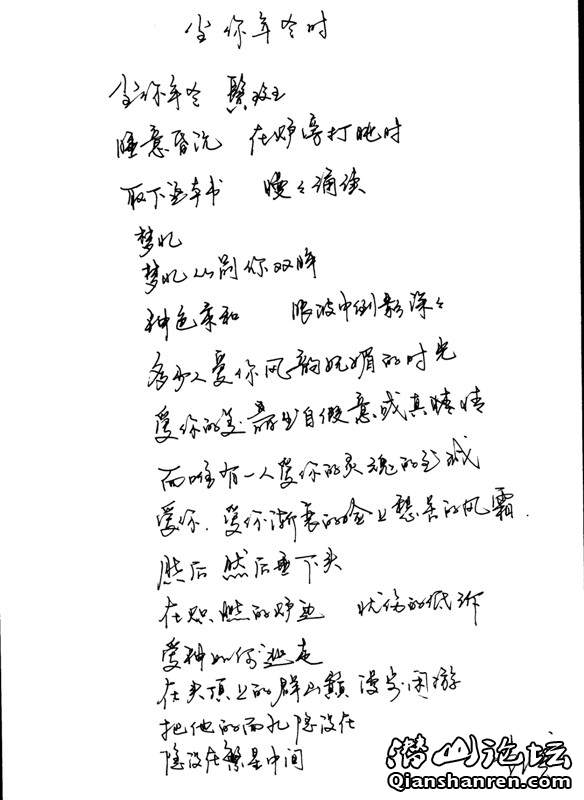 当你年令时
当你年令 鬓斑
睡意昏沉 在炉旁打盹时
取下这本书 慢々诵读
梦忆
梦忆从前你双眸
神色柔和 眼波中倒影深々
多少人爱你风韵妩媚的时光
爱你的美丽出自假意或真情
而唯有一人爱你的灵魂的至诚
爱你 爱你渐衰的脸上愁苦的风霜
然后 然后垂下头
在炽燃的炉边 忧伤的低诉
爱神如何逃走
在头顶上的群山巅漫步闲游
把他的面孔隐没在
隐没在繁星中间
潜山论坛
Qianshanren.com